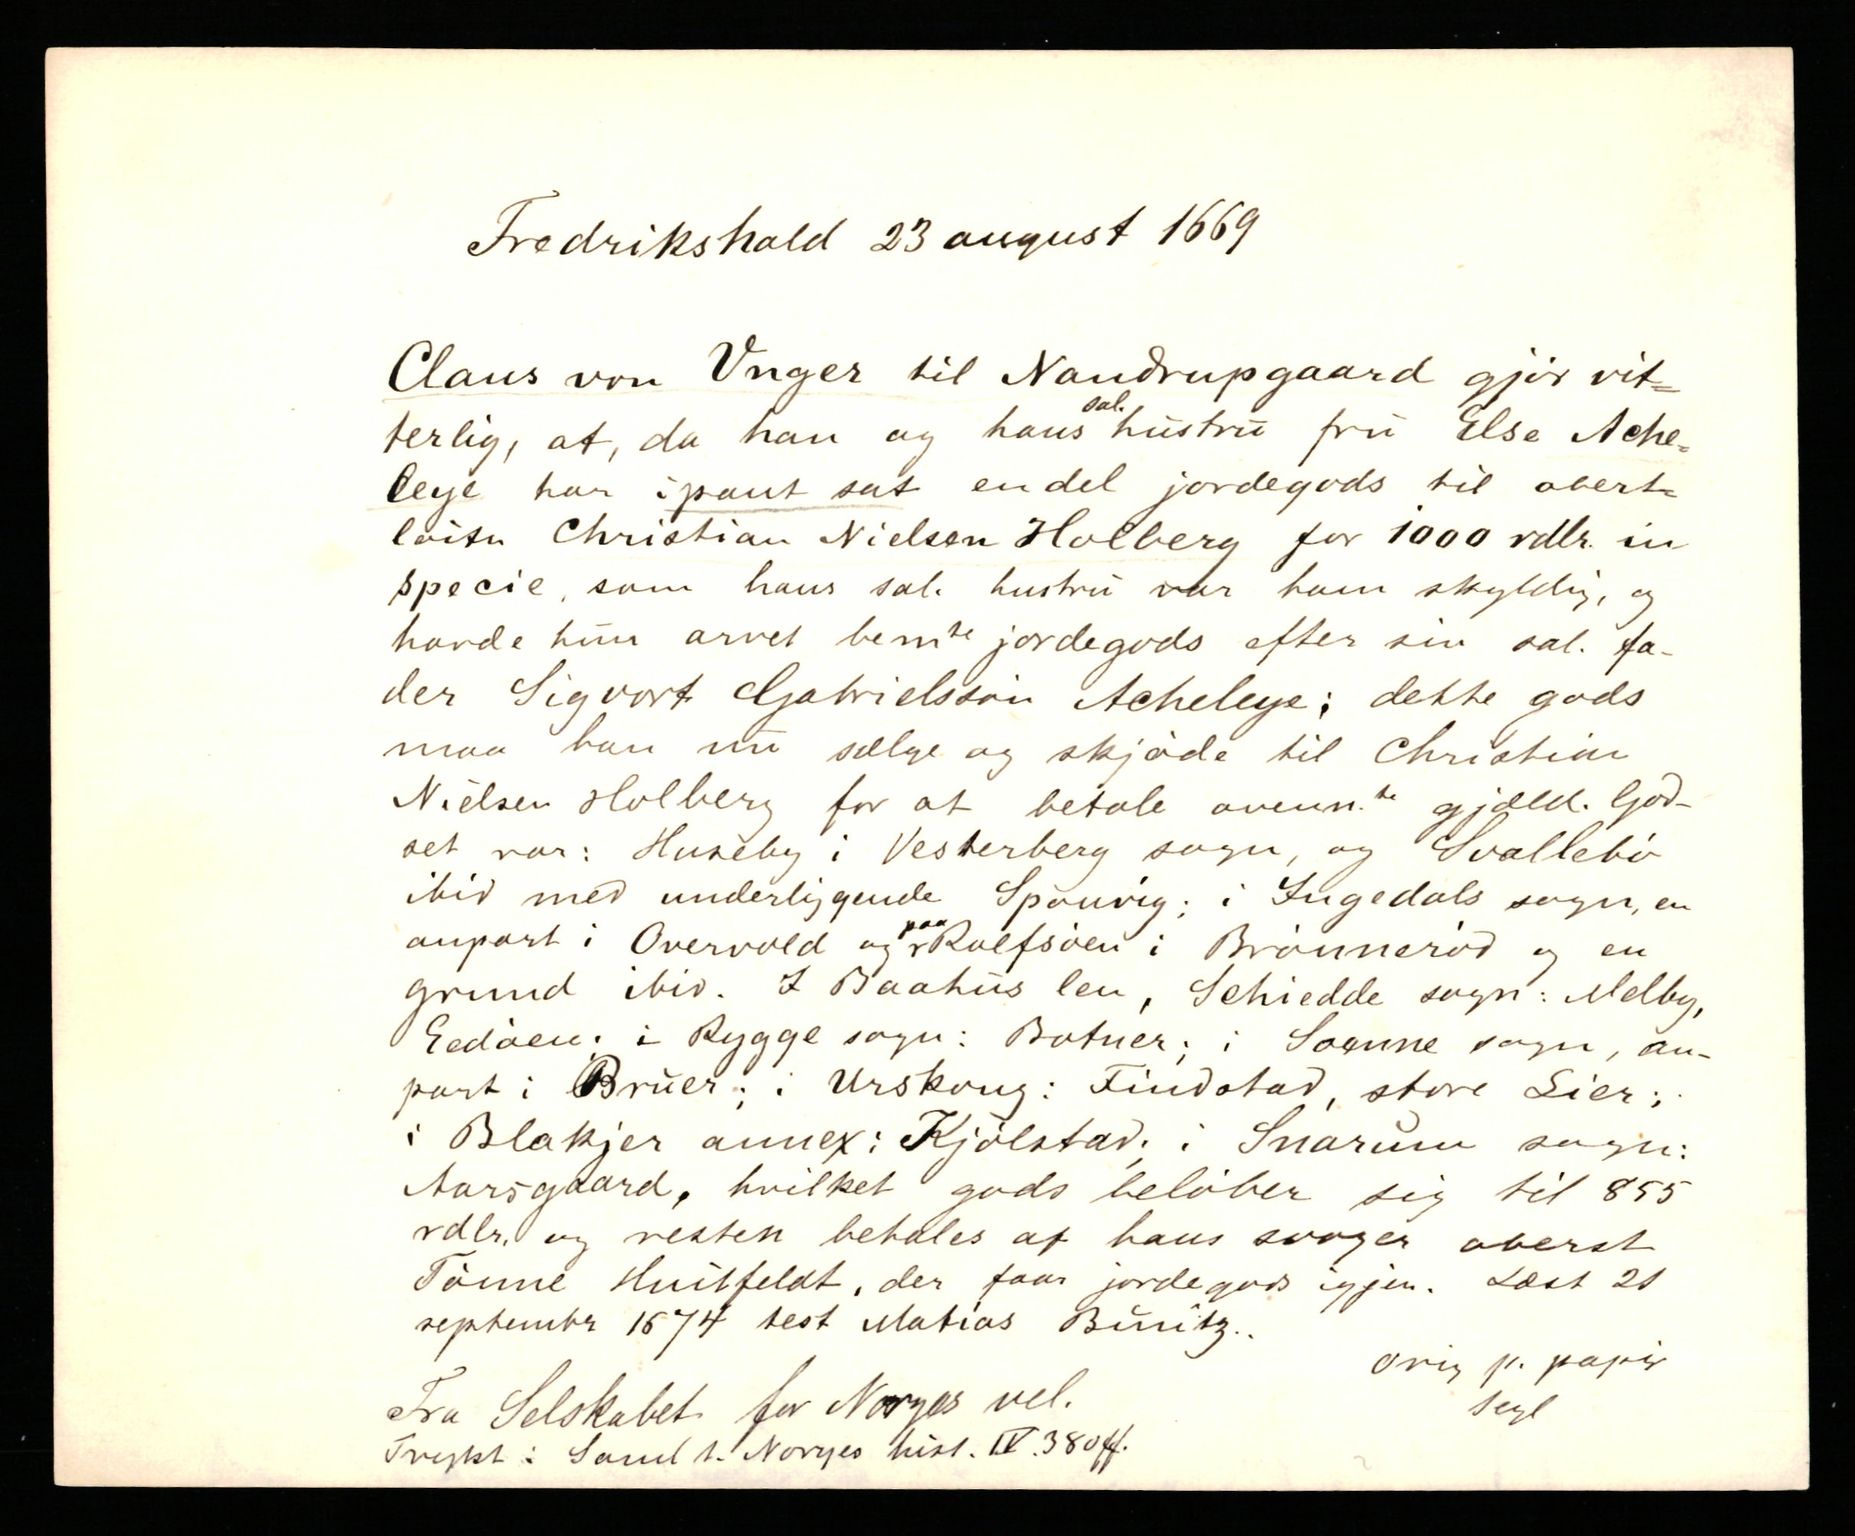 Fredrikshald 23 august 1669
Claus von Unger til Nandrupgaard gjör vit=
terlig, at, da han og hans sal. hustru fru Else Ache=
leye har i pant sat en del jordegods til oberst=
löitn Christian Nielsen Holberg for 1000 rdlr. in
specie, som hans sal. hustru var ham skyldig, og
havde hun arvet bemte jordegods efter sin sal. fa-
der Sigvort Gabrielssön Acheleye; dette gods
maa han nu sælge og skjöde til Christian
Nielsen Holberg for at betale ovenn.te gjæld. God-
set var: Huseby i Vesterberg sogn, og Svallebö
ibid med underliggende Sponvig; i Ingedals sogn, en
anpart i Overvold og paa Rolfsöen i Brönneröd og en
grund ibid. I Baahus len, Schiedde sogn: Melby,
Eedöen; i Rygge sogn: Botner; i Soenne sogn, an-
part i Bruer; i Urskoug: Findstad, store Lier;
i Blakjer annex: Kjölstad; i Snarum sogn:
Aarsgaard, hvilket gods belöber sig til 855
rdlr. og resten betales af hans svoger oberst
Tönne Huitfeldt, der faar jordegods igjen. Læst 21
septembr 1674 test Matias Bünitz..
orig p. papir
segl
Fra Selskabet for Norges vel.
Trykt i Saml t. Norges hist. IV. 380ff.